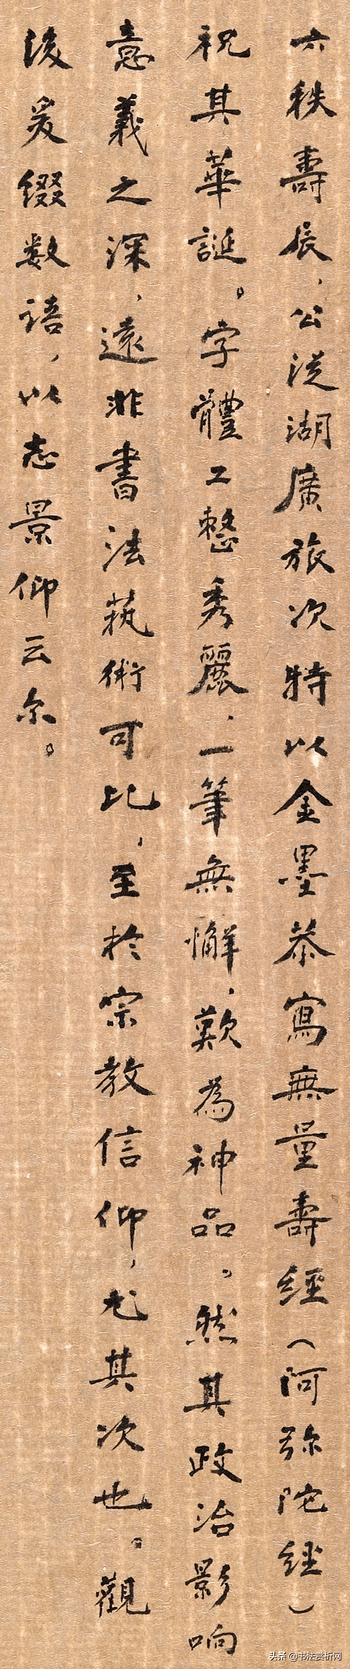 六秩壽辰，公從湖廣旅次特以金墨恭寫無量壽經（阿弥陀經）
祝其華誕。字體工整秀麗、一筆無懈，歎為神品。然其政治影响
意義之深，遠非書法藝術可比，至於宗教信仰，尤其次也。觀
後爰缀数語，以志景仰云尔。
头条 @书法赏析网